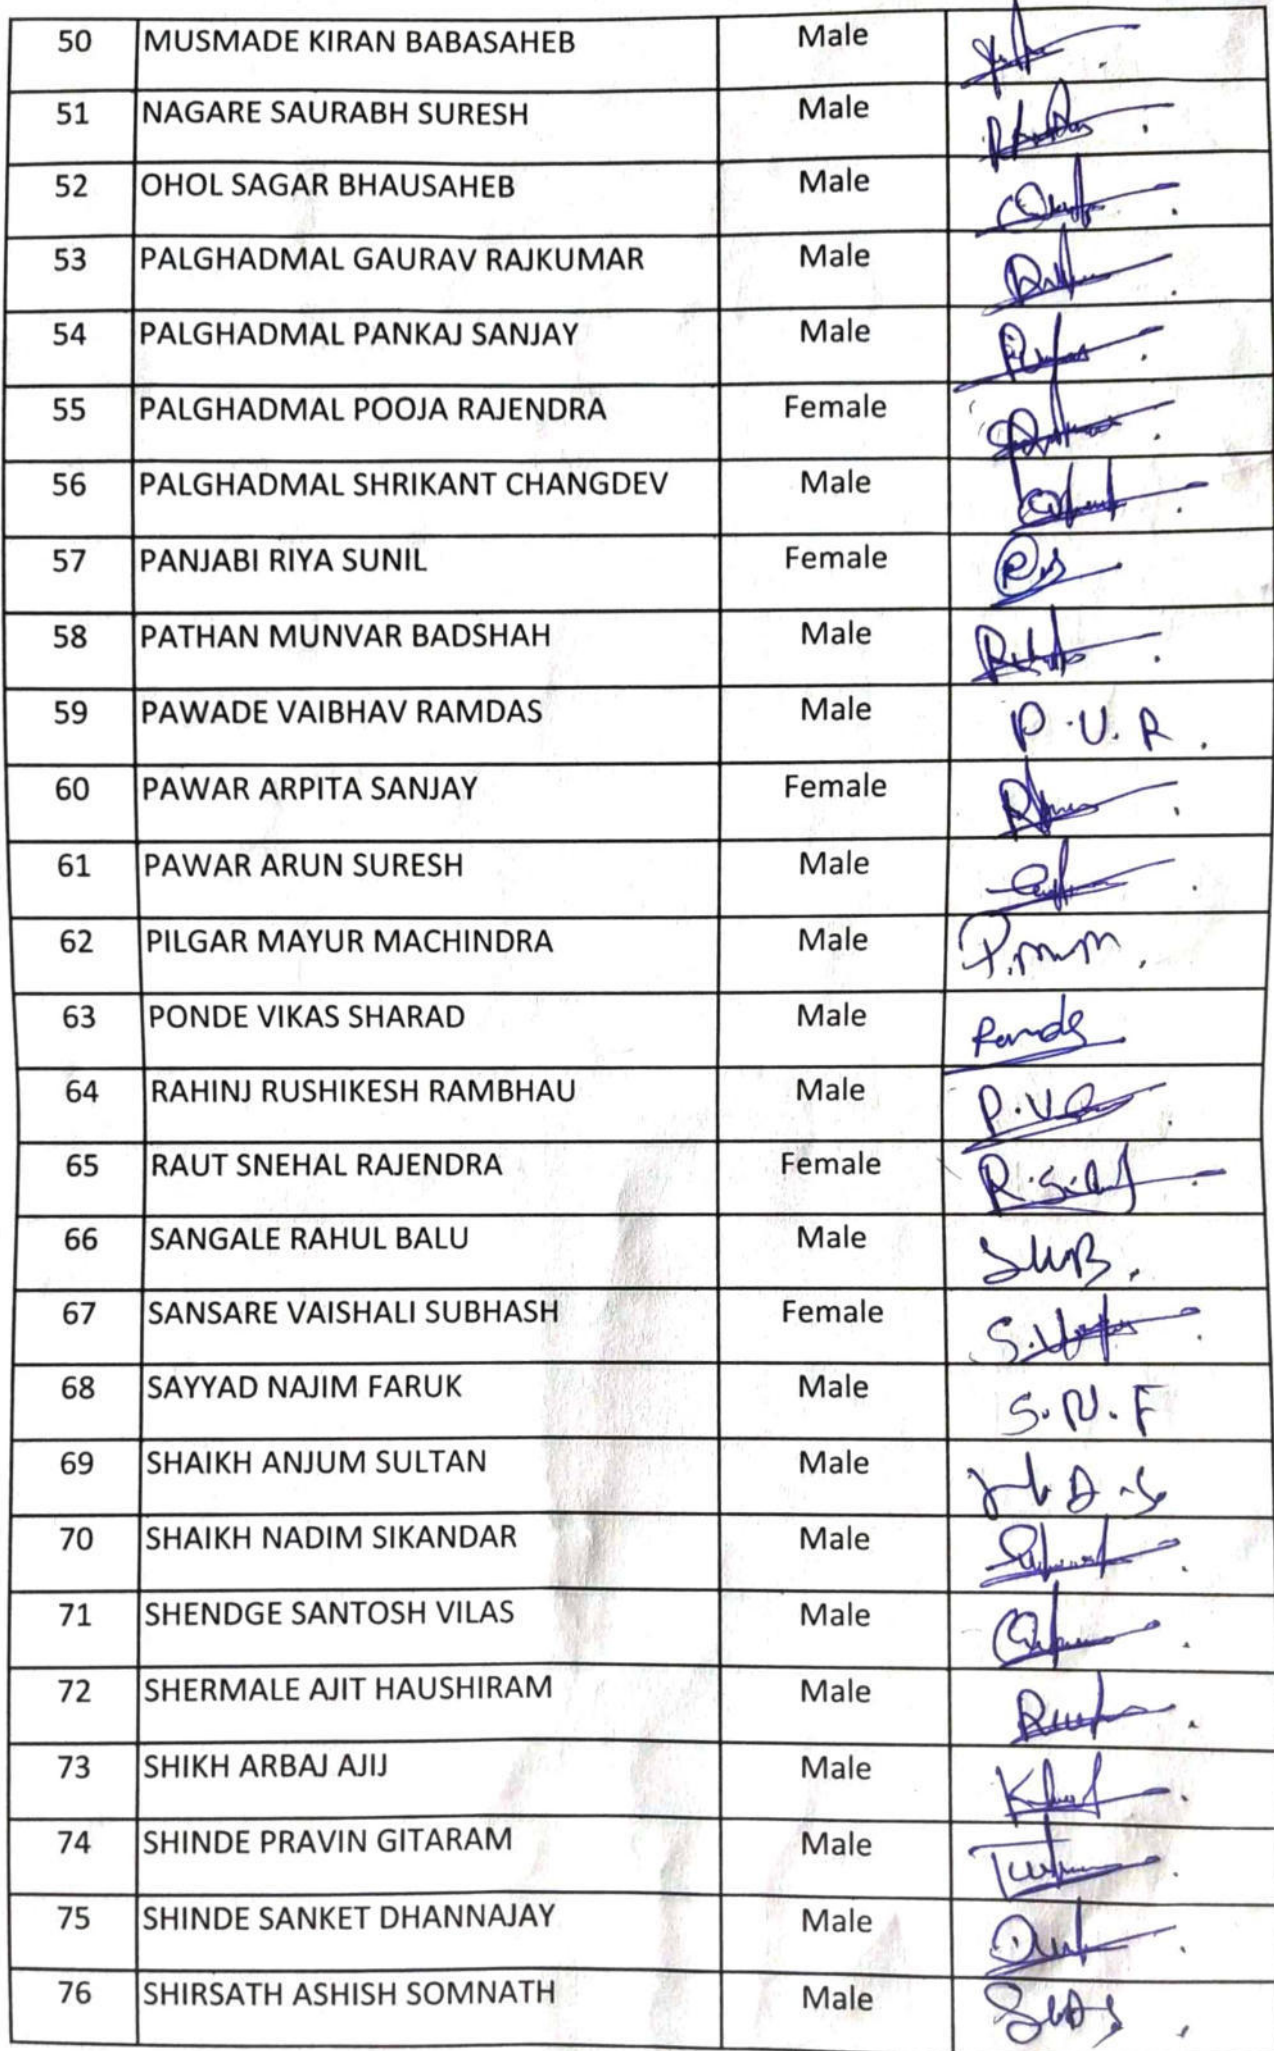 50 MUSMADE KIRAN BABASAHEB Male
51 NAGARE SAURABH SURESH Male
52 OHOL SAGAR BHAUSAHEB Male
53 PALGHADMAL GAURAV RAJKUMAR Male
54 PALGHADMAL PANKAJ SANJAY Male
55 PALGHADMAL POOJA RAJENDRA Female
56 PALGHADMAL SHRIKANT CHANGDEV Male
57 PANJABI RIYA SUNIL Female
58 PATHAN MUNVAR BADSHAH Male
59 PAWADE VAIBHAV RAMDAS Male P.V.R.
60 PAWAR ARPITA SANJAY Female
61 PAWAR ARUN SURESH Male
62 PILGAR MAYUR MACHINDRA Male
63 PONDE VIKAS SHARAD Male
64 RAHINJ RUSHIKESH RAMBHAU Male
65 RAUT SNEHAL RAJENDRA Female
66 SANGALE RAHUL BALU Male
67 SANSARE VAISHALI SUBHASH Female
68 SAYYAD NAJIM FARUK Male S.N.F
69 SHAIKH ANJUM SULTAN Male
70 SHAIKH NADIM SIKANDAR Male
71 SHENDGE SANTOSH VILAS Male
72 SHERMALE AJIT HAUSHIRAM Male
73 SHIKH ARBAJ AJIJ Male
74 SHINDE PRAVIN GITARAM Male
75 SHINDE SANKET DHANNAJAY Male
76 SHIRSATH ASHISH SOMNATH Male